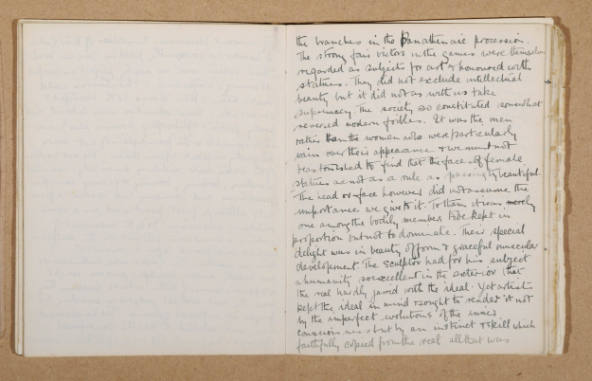 the branches in the Panathenaic procession.
The strong fair victors in the games were themselves
regarded as subjects for art & honoured with
statues. They did not exclude intellectual
beauty but it did not as with us take
supremacy. The society so constituted somewhat
reversed modern foibles. It was the men
rather than the women who were particularly
vain over their appearance & we must not
be astonished to find that the face of female
statues are not as a rule as passingly beautiful.
The head or face however did not assume the
importance we give to it. To them it was merely
one among the bodily members to be kept in
proportion but not to dominate. Their special
delight was in beauty of form & graceful muscular
development. The sculptor had for his subject
a humanity so excellent in the exterior that
the real hardly jarred with the ideal. Yet artist
kept the ideal in mind & sought to render it not
by the imperfect evolutions of the inner
consciousness but by an instinct & skill which
faithfully copied from the real all that was